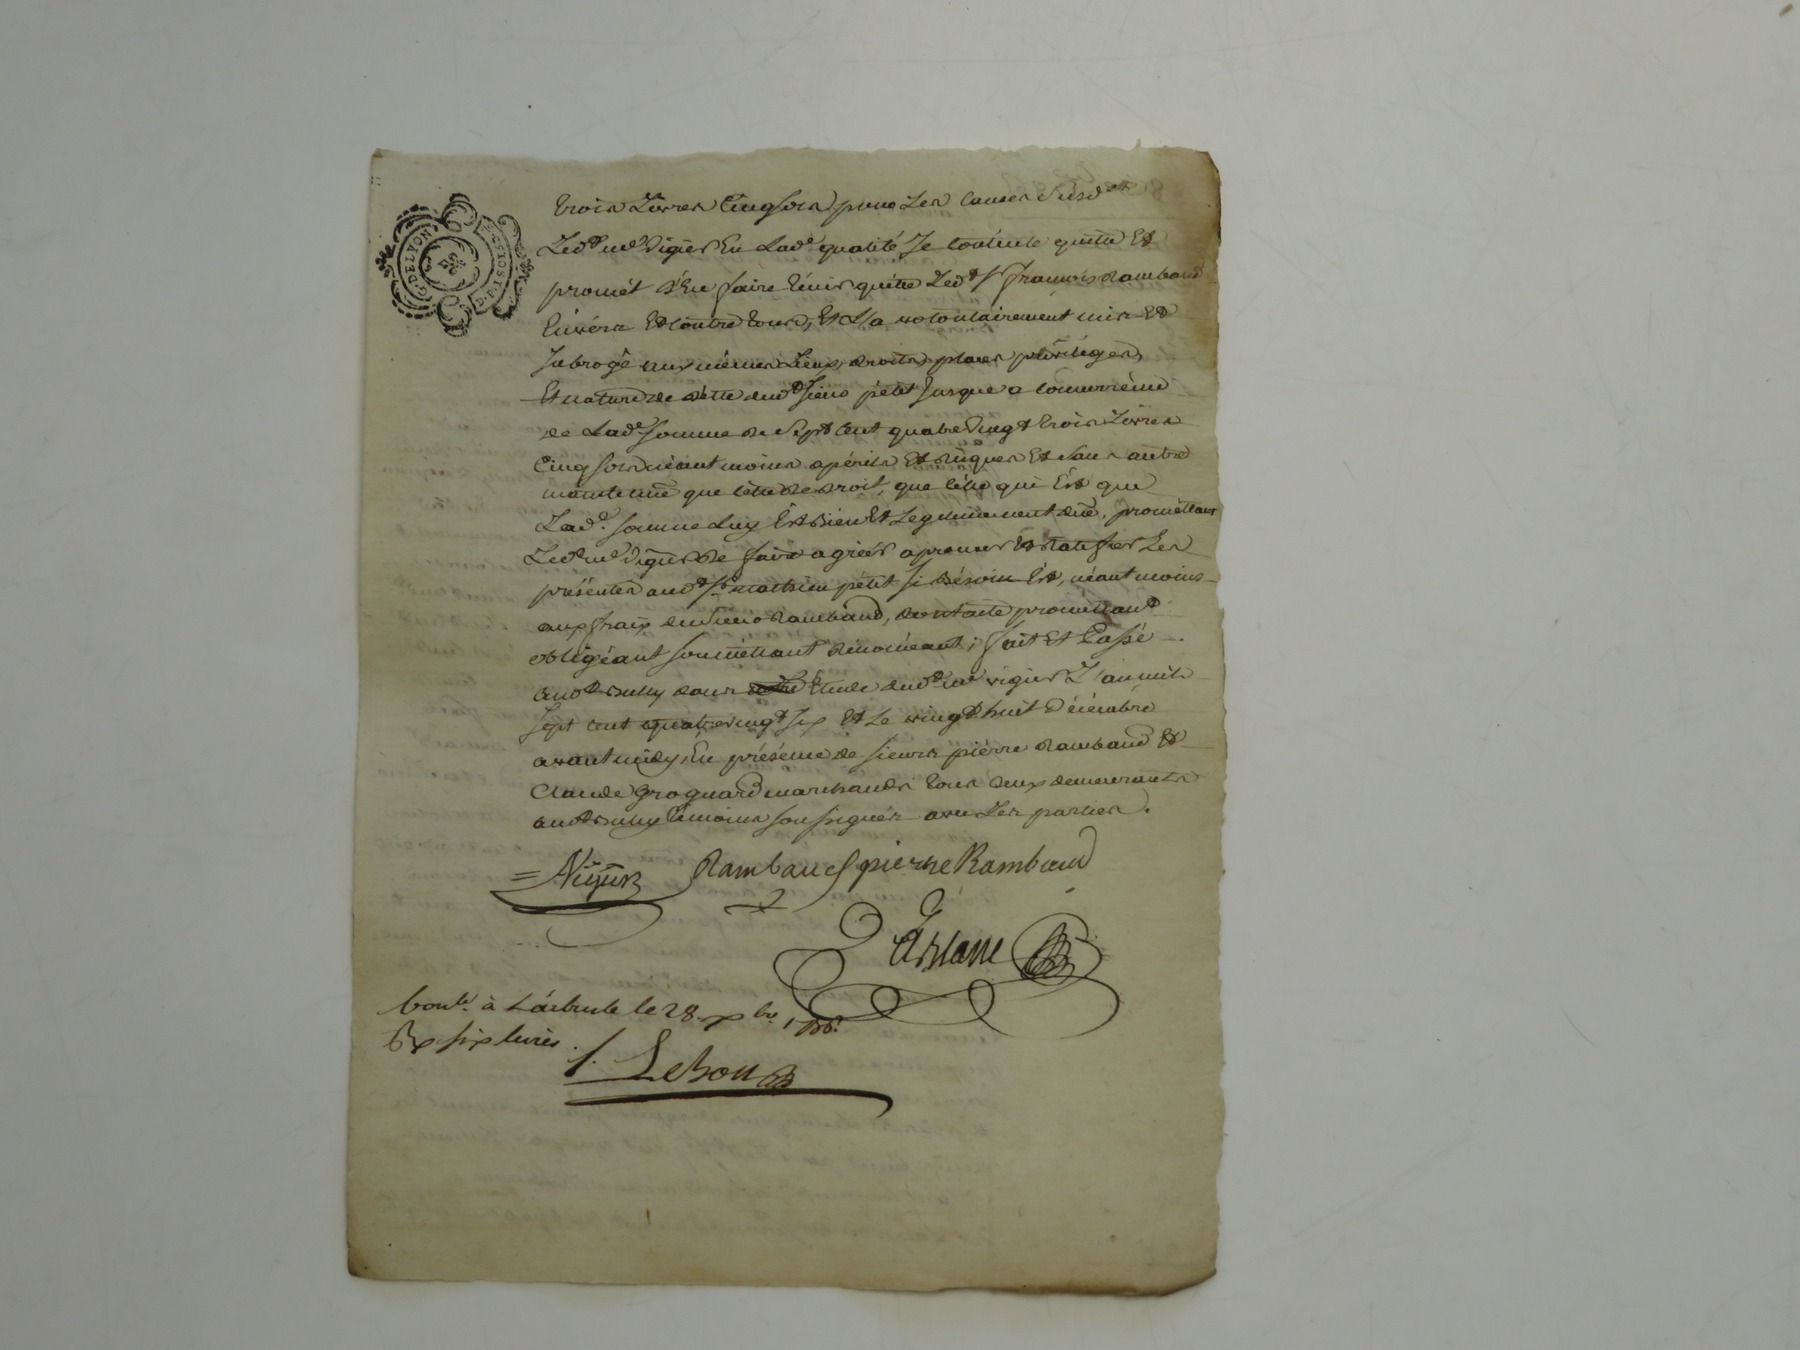 G. DE LYON
trois Livres Cinq sols pour Les Causes Susd.
Led. me Vigier En Lad. qualité Se Contente quitte Et
promet d'En faire tenir quitte Led. Sr françois Rambaud
Envers Et Contre tous, Et L'a volontairement mis Et
Subrogé aux mêmes Lieux, droits, places privilèges,
Et nature de dette dud. Sieur petit Jusque a Concurrence
de Lad. Somme de Sept Cent quatre vingt trois Livres
Cinq sols néantmoins a périls Et Risques Et Sans autre
maintenue que Celle de droit, que Celle qui Est que
Lad. Somme Luy Est Bien Et Legitimement due, promettant
Led. me Vigier de faire agréér aprouver Et Ratifier Les
présentes aud. Sr mathieu petit Si Bésoin Est, néantmoins
aux fraix dud. Sieur Rambaud, dont acte promettant
obligéant Soumettant Renonceant; fait Et Passé
aud. Bully dans Étude dud. me vigier L'an mil
Sept Cent quatre vingt Six Et Le vingt huit Décémbre
avant midy, En présénce de Sieurs piérre Rambaud Et
Claude Groguard marchands tous deux demeurants
aud. Bully témoins Soussignés avec Les parties.
Vigier Rambaud pierre Rambaud
Contlé à L'arbresle le 28 xbre 1786
six livres.
Lebon